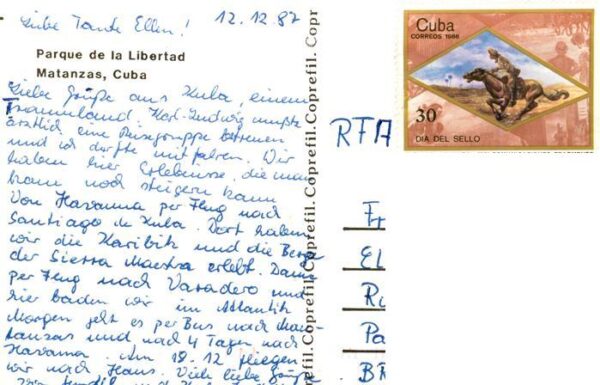 Liebe Tante Ellen! 12.12.87
Parque de la Libertad
Matanzas, Cuba
Liebe Grüße aus Kuba, einem
Traumland. Karl-Ludwig mußte
ärztlich eine Reisegruppe betreuen
und ich durfte mitfahren. Wir
haben hier Erlebnisse, die man
kaum noch steigern kann
Von Havanna per Flug nach
Santiago de Kuba. Dort haben
wir die Karibik und die Berge
der Sierra Maestra erlebt. Dann
per Flug nach Varadero und
hier baden wir im Atlantik
Morgen geht es per Bus nach Ma-
tanzas und nach 4 Tagen nach
Havanna. Am 18.12 fliegen
wir nach Haus. Viele liebe Grüße
Coprefil.Coprefil.Coprefil.Coprefil.Coprefil.Coprefil
Cuba
CORREOS 1986
30
DIA DEL SELLO
RFA
Fr
El
Ru
Pa
BR